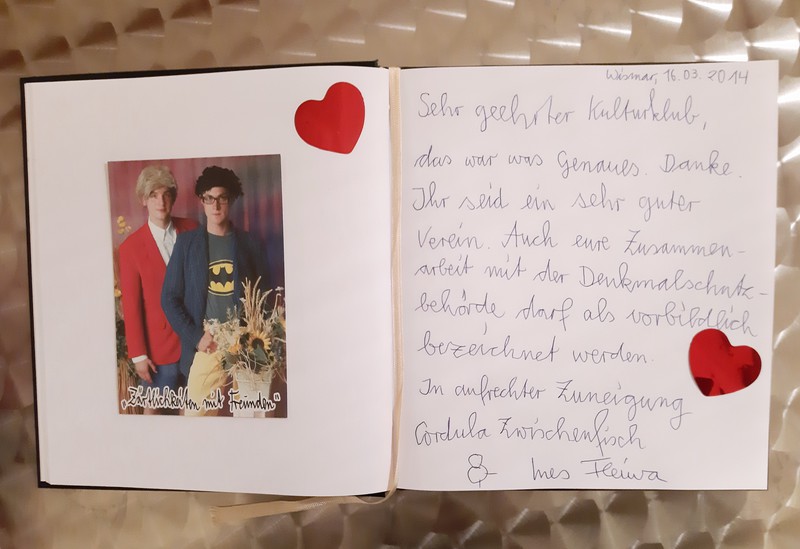 „Zärtlichkeiten mit Freunden“
Wismar, 16.03.2014
Sehr geehrter Kulturklub,
das war was Genaues. Danke.
Ihr seid ein sehr guter
Verein. Auch eure Zusammen-
arbeit mit der Denkmalschutz-
behörde darf als vorbildlich
bezeichnet werden.
In aufrechter Zuneigung
Cordula Zwischenfisch
& Ines Fleiwa